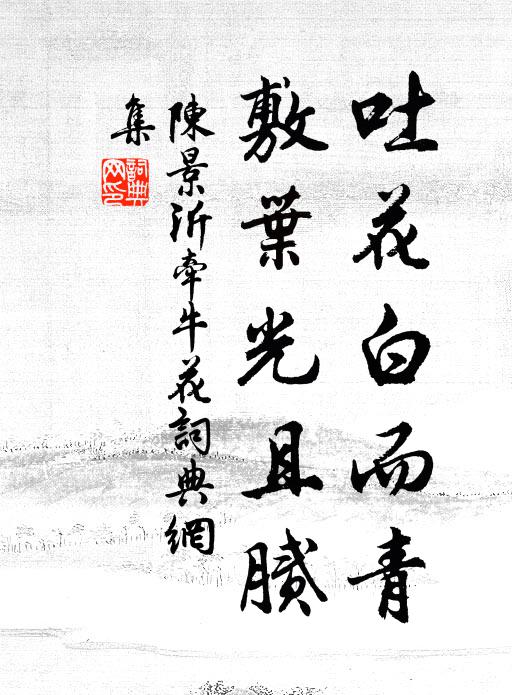 吐花白而青
敷葉光且膩
陳景沂牽牛花詞典網
集
詞典
网印